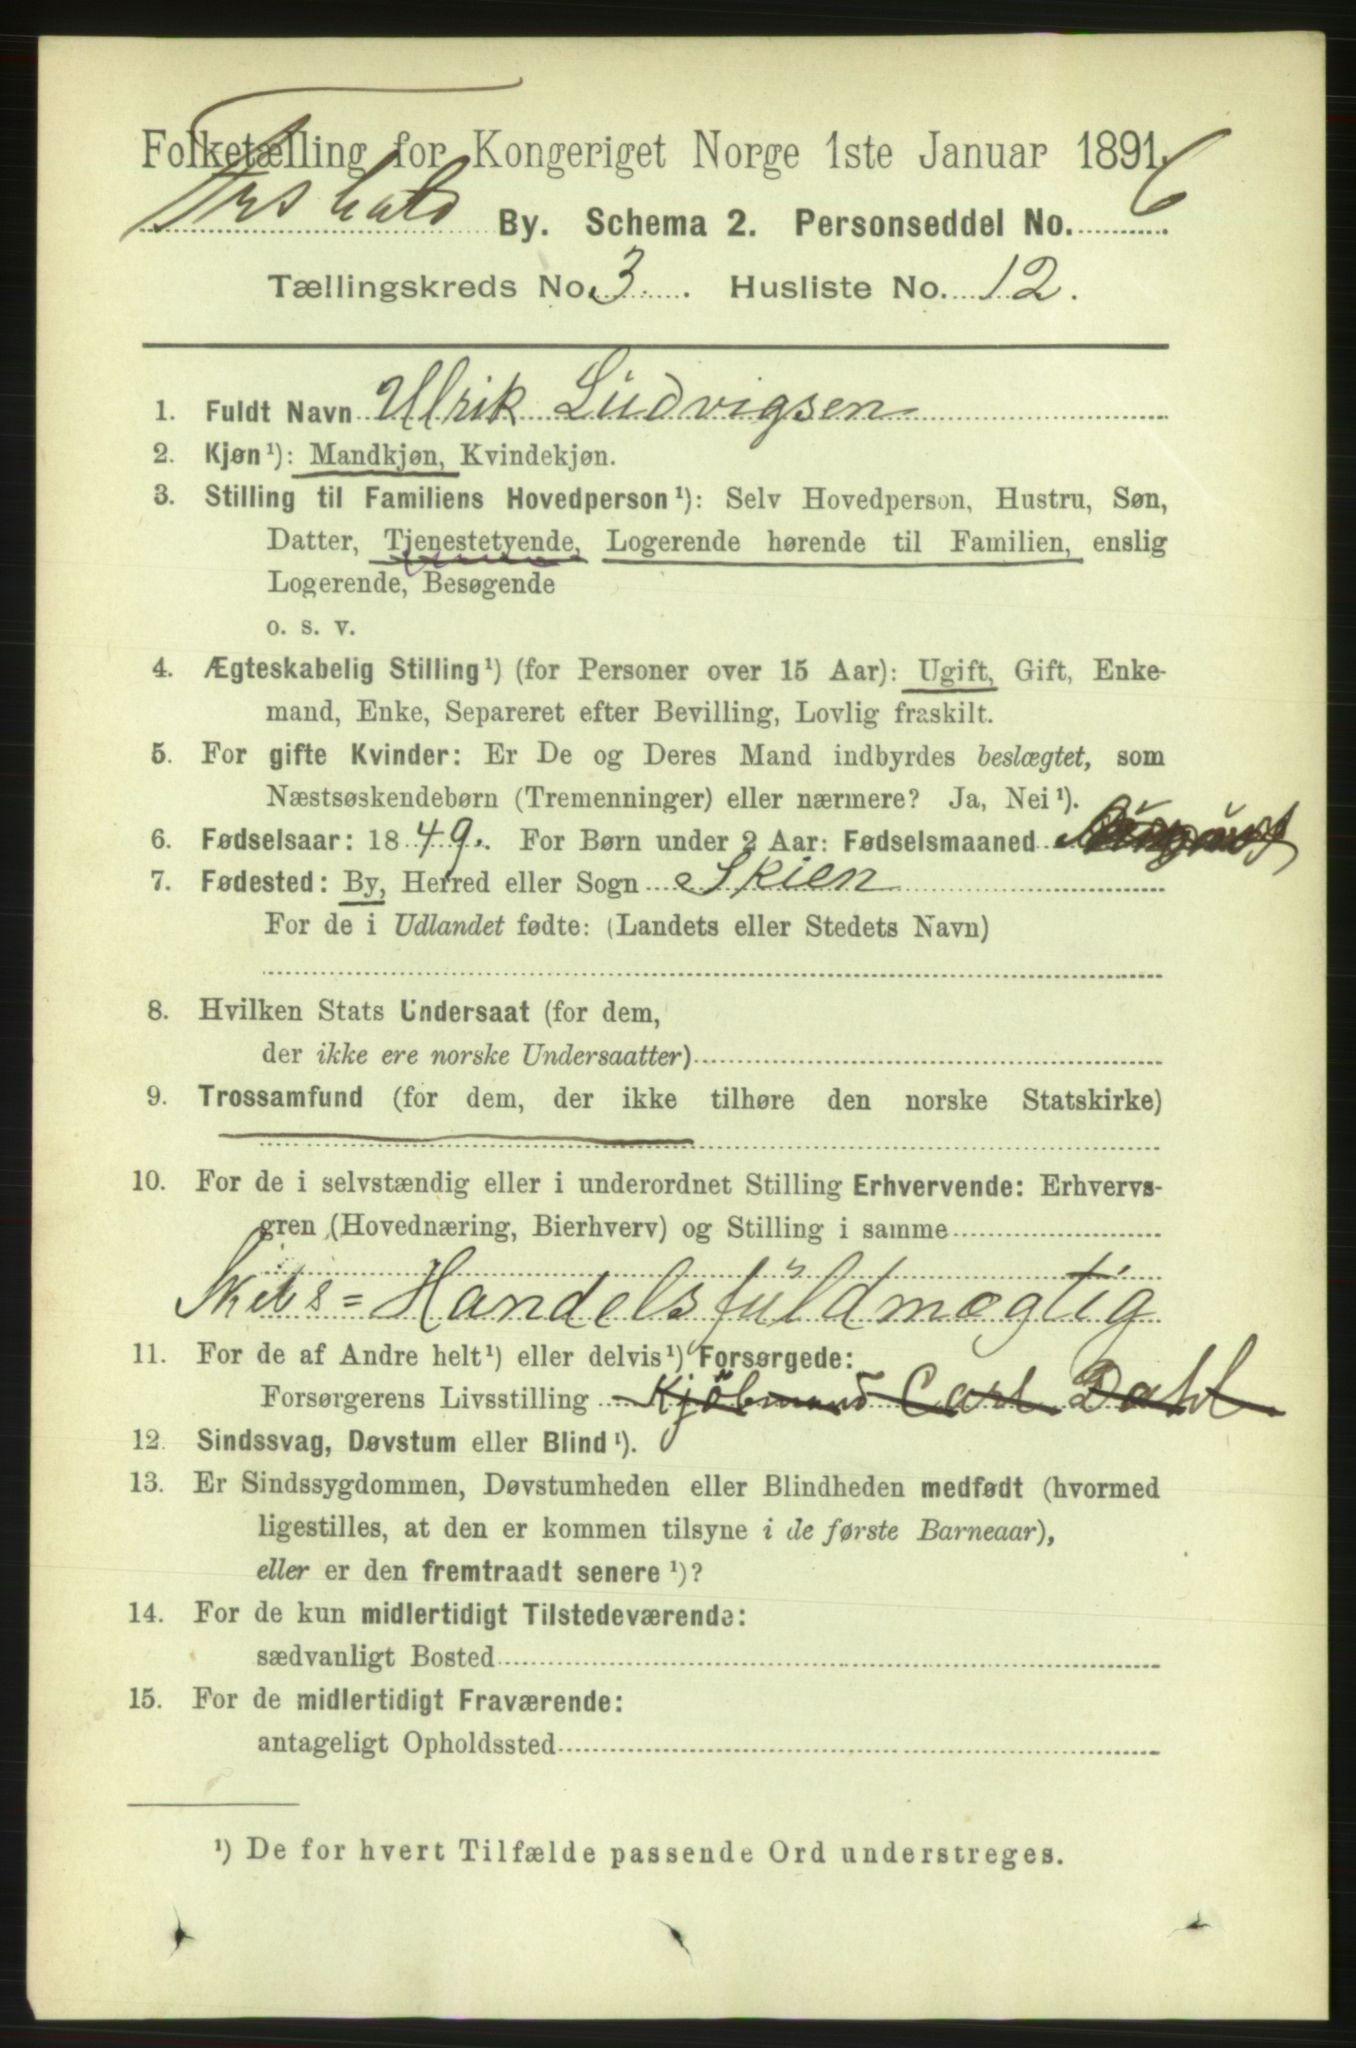 Folketælling for Kongeriget Norge 1ste Januar 1891.
Frshald By. Schema 2. Personseddel No. 6
Tællingskreds No. 3. Husliste No. 12.
1. Fuldt Navn Ulrik Ludvigsen
2. Kjøn¹): Mandkjøn, Kvindekjøn.
3. Stilling til Familiens Hovedperson¹): Selv Hovedperson, Hustru, Søn,
Datter, Tjenestetyende, Logerende hørende til Familien, enslig
Logerende, Besøgende
o. s. v.
4. Ægteskabelig Stilling¹) (for Personer over 15 Aar): Ugift, Gift, Enke-
mand, Enke, Separeret efter Bevilling, Lovlig fraskilt.
5. For gifte Kvinder: Er De og Deres Mand indbyrdes beslægtet, som
Næstsøskendebørn (Tremenninger) eller nærmere? Ja, Nei¹).
6. Fødselsaar: 1849. For Børn under 2 Aar: Fødselsmaaned
7. Fødested: By, Herred eller Sogn Skien
For de i Udlandet fødte: (Landets eller Stedets Navn)
8. Hvilken Stats Undersaat (for dem,
der ikke ere norske Undersaatter)
9. Trossamfund (for dem, der ikke tilhøre den norske Statskirke)
10. For de i selvstændig eller i underordnet Stilling Erhvervende: Erhvervs-
gren (Hovednæring, Bierhverv) og Stilling i samme
Skibs=Handelsfuldmægtig
11. For de af Andre helt¹) eller delvis¹) Forsørgede:
Forsørgerens Livsstilling Kjöbmand Carl Dahl
12. Sindssvag, Døvstum eller Blind¹).
13. Er Sindssygdommen, Døvstumheden eller Blindheden medfødt (hvormed
ligestilles, at den er kommen tilsyne i de første Barneaar),
eller er den fremtraadt senere¹)?
14. For de kun midlertidigt Tilstedeværende:
sædvanligt Bosted
15. For de midlertidigt Fraværende:
antageligt Opholdssted
¹) De for hvert Tilfælde passende Ord understreges.